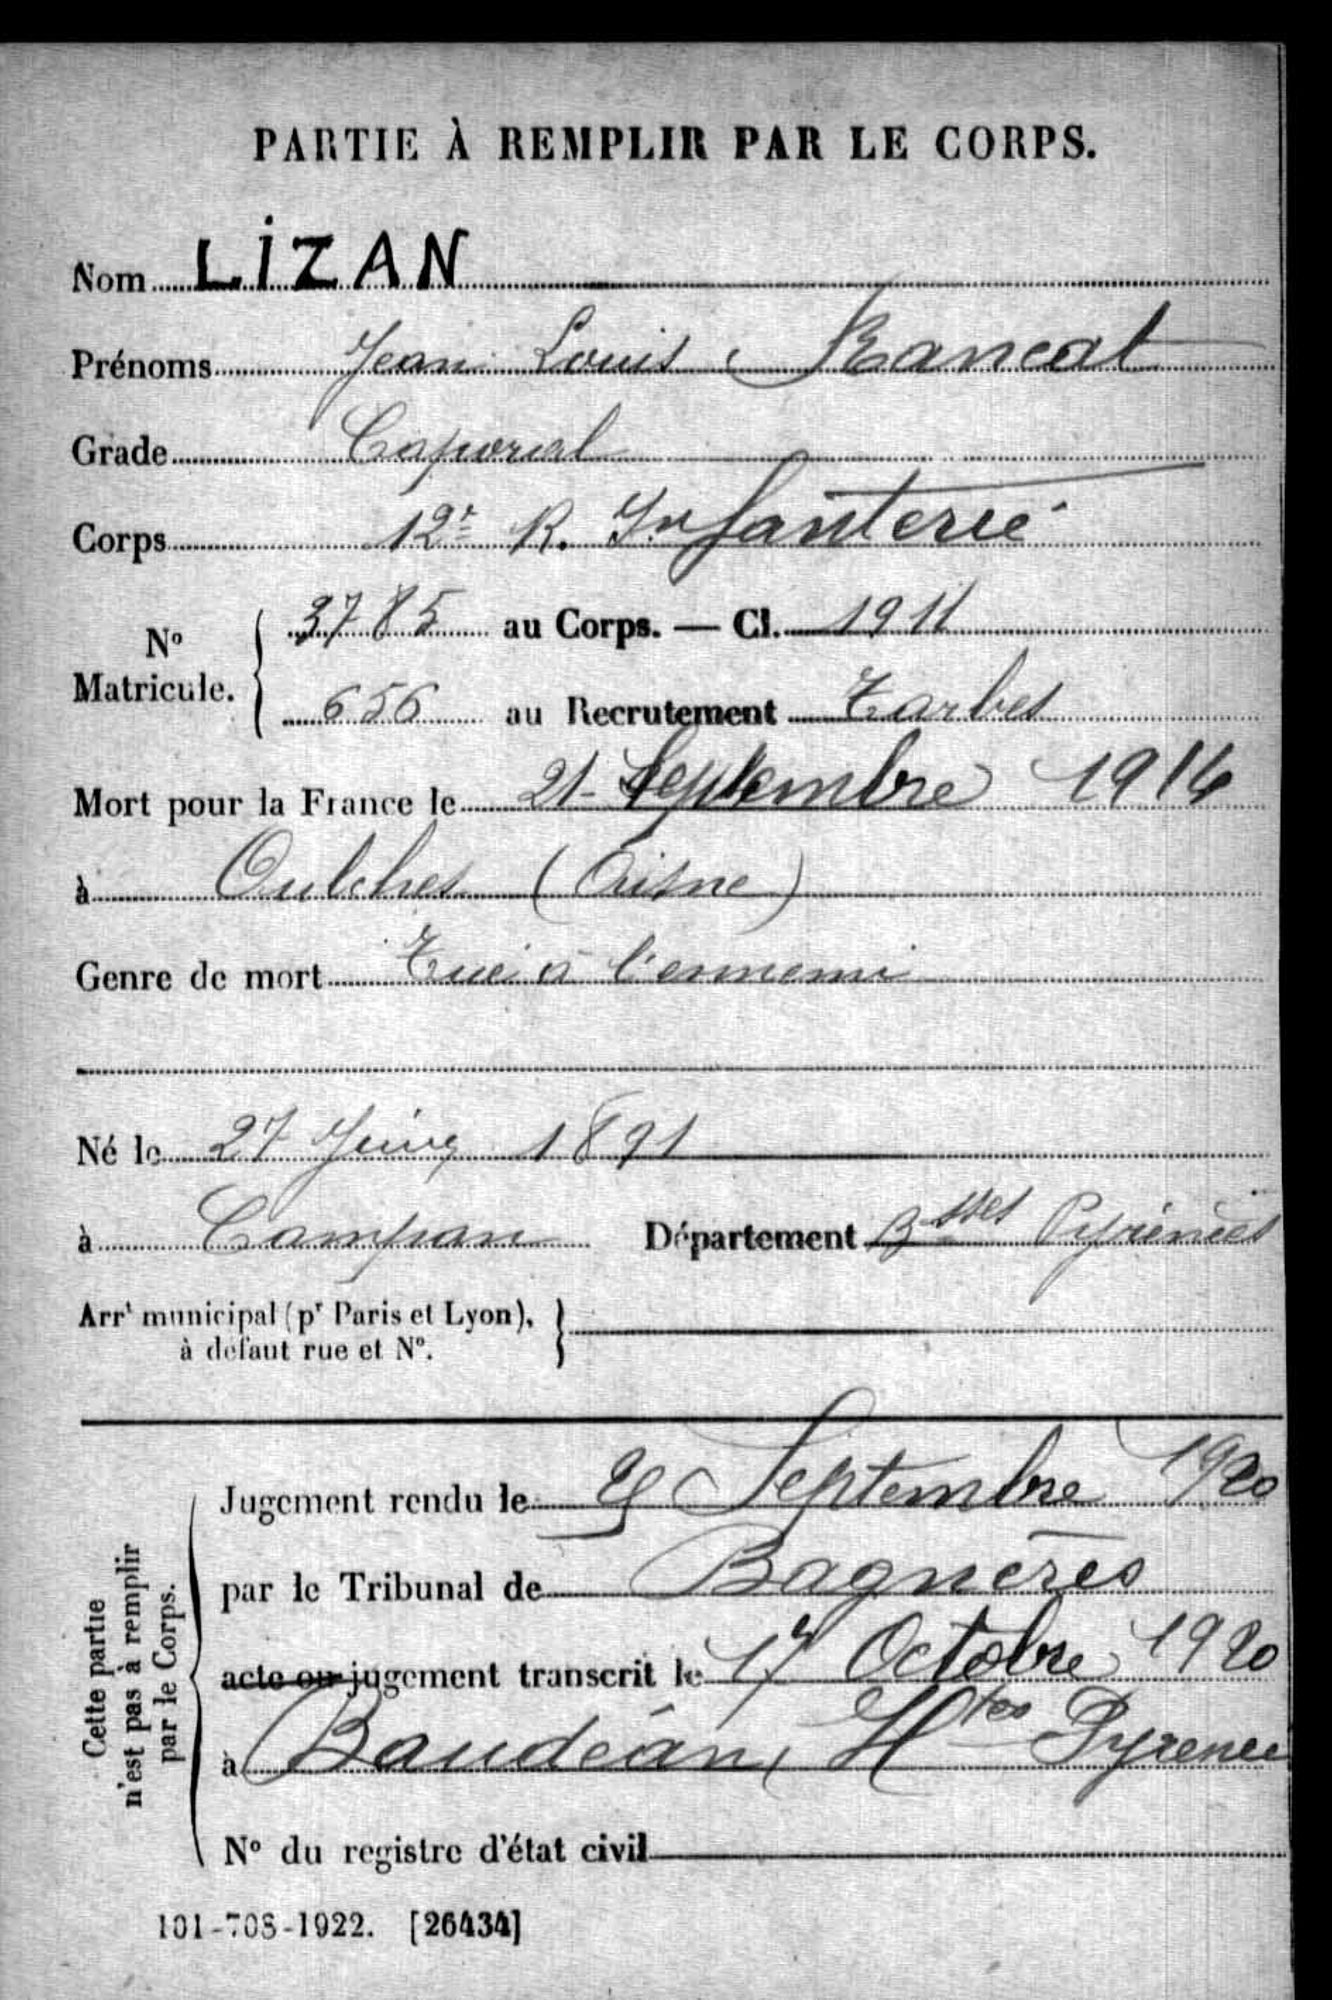 PARTIE À REMPLIR PAR LE CORPS.
Nom LIZAN
Prénoms Jean Louis Rancat
Grade Caporal
Corps 12e R. Infanterie
No Matricule. 3785 au Corps. — Cl. 1911
656 au Recrutement Tarbes
Mort pour la France le 21 Septembre 1914
à Oulches (Aisne)
Genre de mort Tué à l'ennemi
Né le 27 Juin 1891
à Campan Département Bsses Pyrénées
Arrt municipal (pr Paris et Lyon),
à défaut rue et No.
Cette partie
n'est pas à remplir
par le Corps.
Jugement rendu le Septembre 1920
par le Tribunal de Bagnères
acte ou jugement transcrit le 17 Octobre 1920
à Baudéan, Htes Pyrenee
No du registre d'état civil
101-708-1922. [26434]